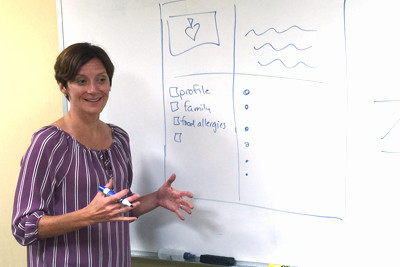 profile
family
food allergies